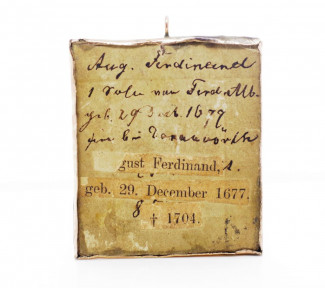 Aug. Ferdinand
1 Sohn von Ferd. Alb.
geb. 29 Dec. 1677
gust Ferdinand, 1.
geb. 29. December 1677,
8 † 1704.